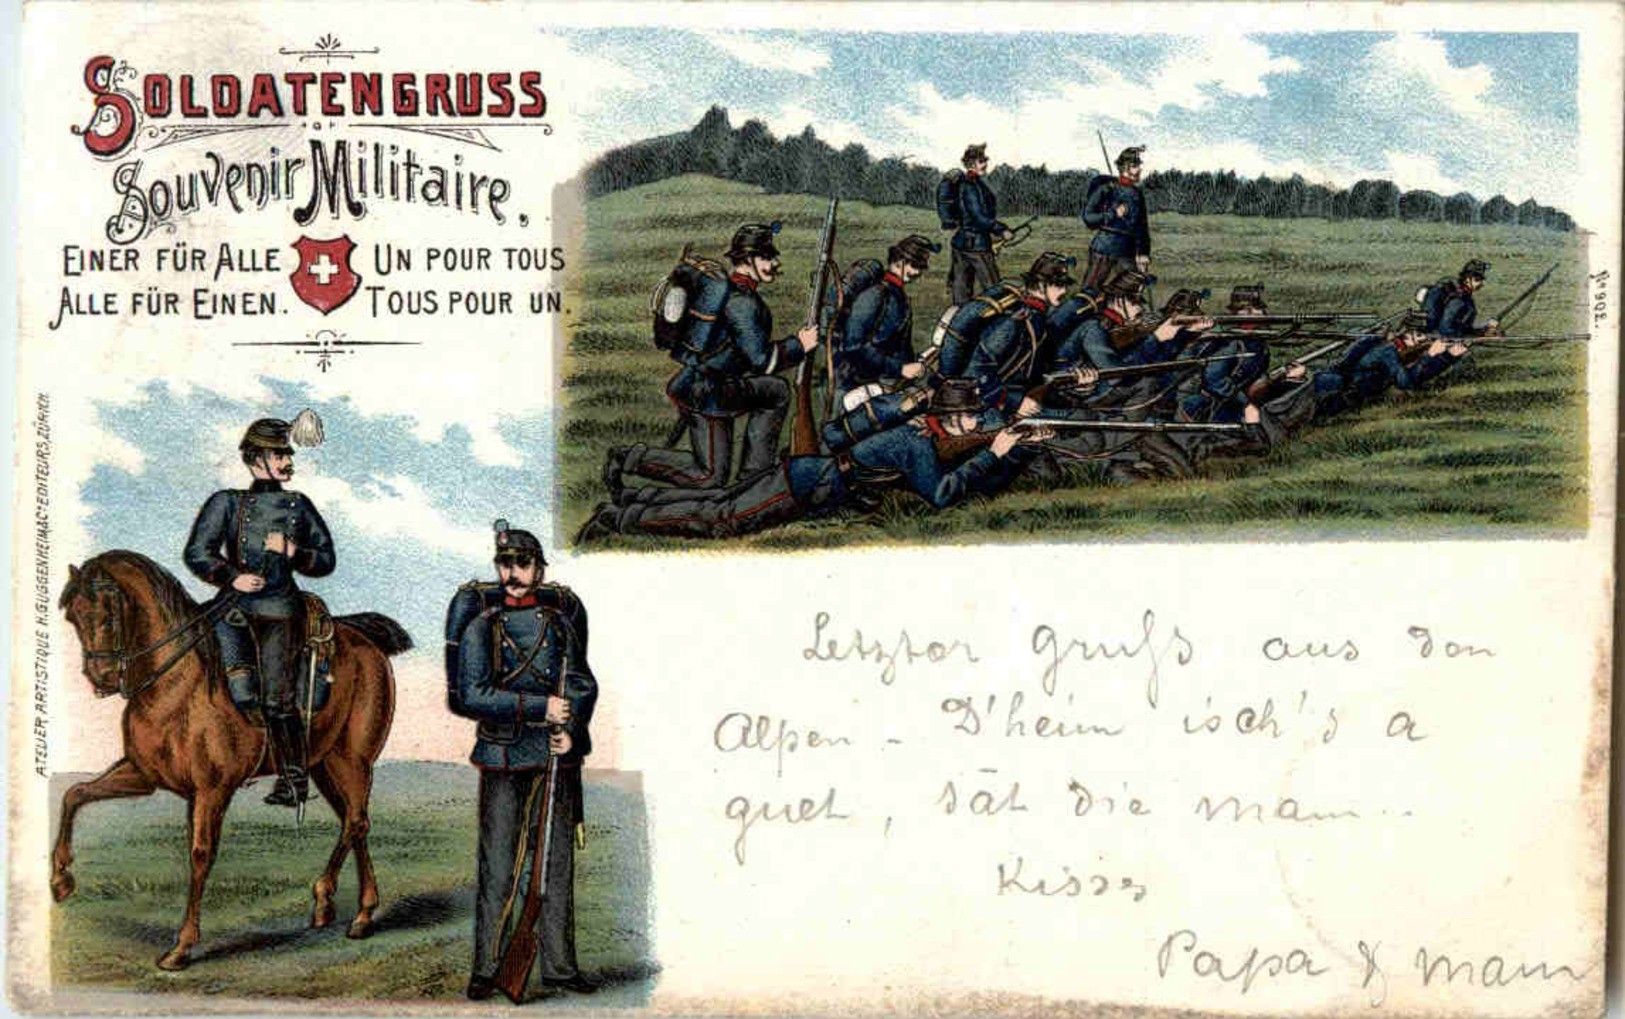 SOLDATENGRUSS
Souvenir Militaire.
EINER FÜR ALLE
ALLE FÜR EINEN.
UN POUR TOUS
TOUS POUR UN.
No 902.
ATELIER ARTISTIQUE H. GUGGENHEIM & Co EDITEURS, ZÜRICH.
Letzter Gruß aus den
Alpen - D'heim isch's a
guet, sät die Mam..
Kisses
Papa & Mam